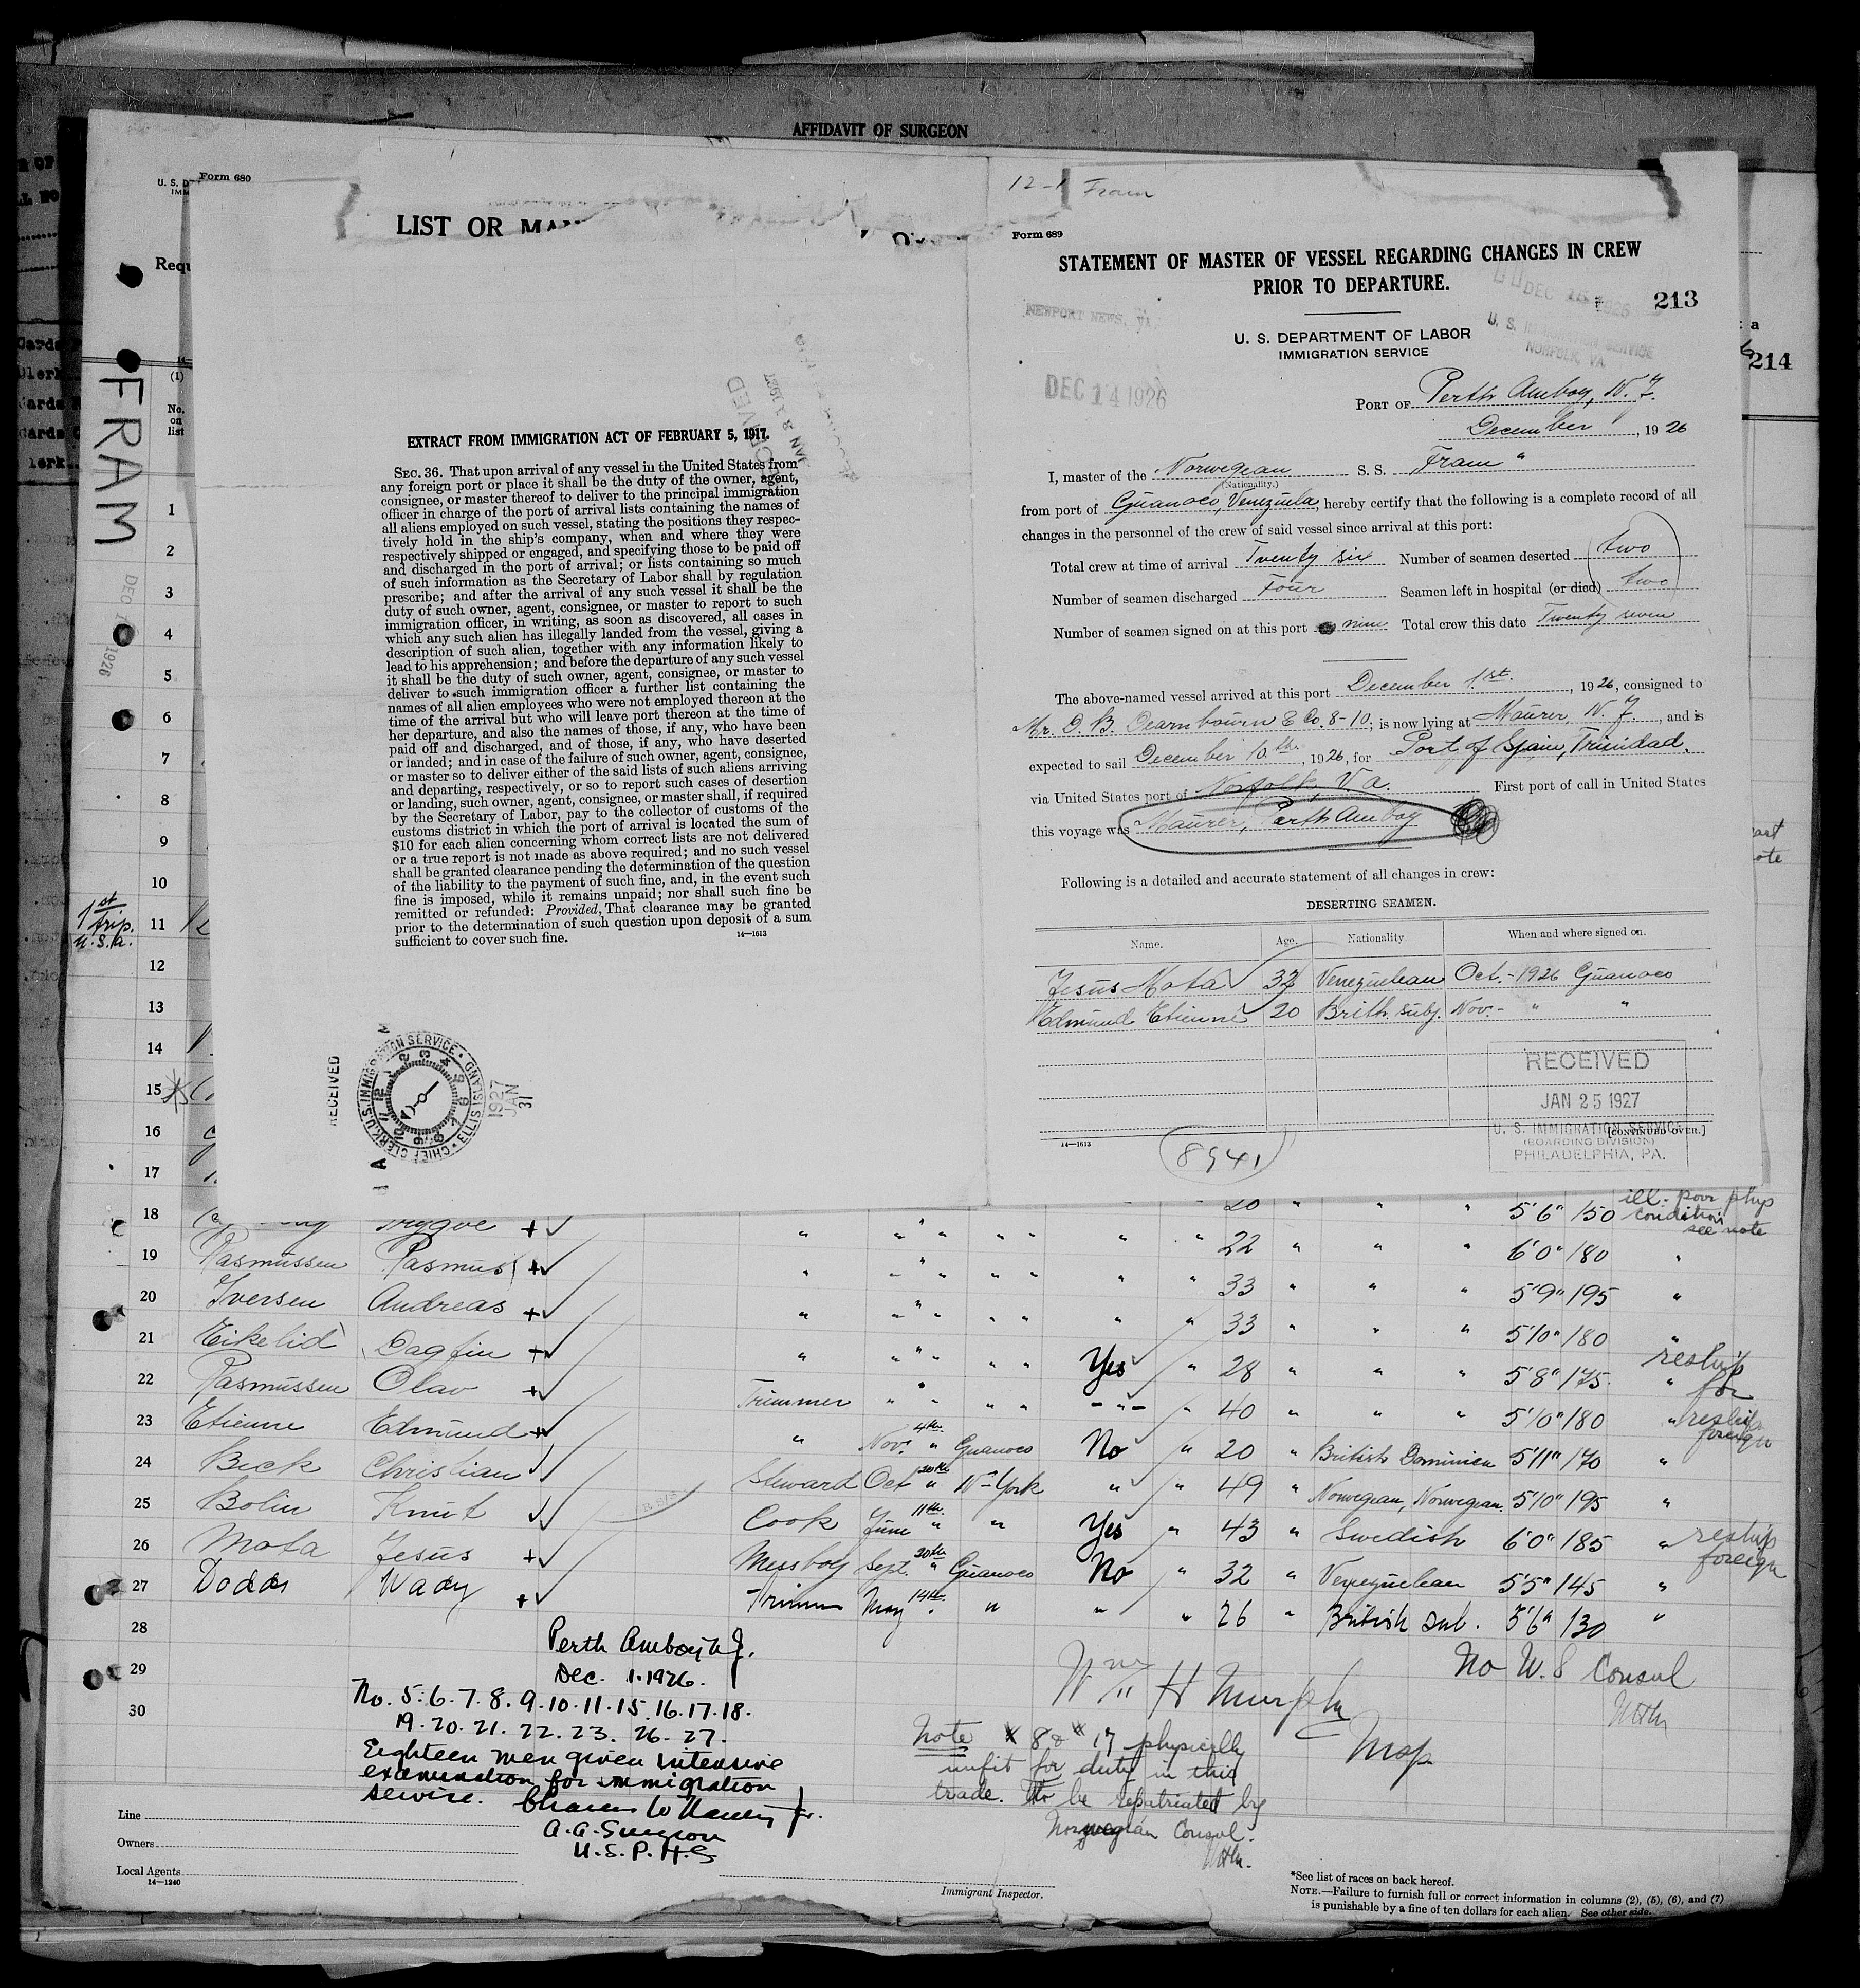 AFFIDAVIT OF SURGEON
Form 680
U. S. D
IMM
LIST OR MAN
Requ
FRAM
DEC 1 1926
(1)
No. on list
EXTRACT FROM IMMIGRATION ACT OF FEBRUARY 5, 1917.
SEC. 36. That upon arrival of any vessel in the United States from
any foreign port or place it shall be the duty of the owner, agent,
consignee, or master thereof to deliver to the principal immigration
officer in charge of the port of arrival lists containing the names of
all aliens employed on such vessel, stating the positions they respec-
tively hold in the ship's company, when and where they were
respectively shipped or engaged, and specifying those to be paid off
and discharged in the port of arrival; or lists containing so much
of such information as the Secretary of Labor shall by regulation
prescribe; and after the arrival of any such vessel it shall be the
duty of such owner, agent, consignee, or master to report to such
immigration officer, in writing, as soon as discovered, all cases in
which any such alien has illegally landed from the vessel, giving a
description of such alien, together with any information likely to
lead to his apprehension; and before the departure of any such vessel
it shall be the duty of such owner, agent, consignee, or master to
deliver to such immigration officer a further list containing the
names of all alien employees who were not employed thereon at the
time of the arrival but who will leave port thereon at the time of
her departure, and also the names of those, if any, who have been
paid off and discharged, and of those, if any, who have deserted
or landed; and in case of the failure of such owner, agent, consignee,
or master so to deliver either of the said lists of such aliens arriving
and departing, respectively, or so to report such cases of desertion
or landing, such owner, agent, consignee, or master shall, if required
by the Secretary of Labor, pay to the collector of customs of the
customs district in which the port of arrival is located the sum of
$10 for each alien concerning whom correct lists are not delivered
or a true report is not made as above required; and no such vessel
shall be granted clearance pending the determination of the question
of the liability to the payment of such fine, and, in the event such
fine is imposed, while it remains unpaid; nor shall such fine be
remitted or refunded: Provided, That clearance may be granted
prior to the determination of such question upon deposit of a sum
sufficient to cover such fine.
14—1613
RECEIVED
CHIEF CLERK U.S. IMMIGRATION SERVICE ELLIS ISLAND
1927 JAN 31
12-1 Fram
Form 689
STATEMENT OF MASTER OF VESSEL REGARDING CHANGES IN CREW
PRIOR TO DEPARTURE.
213
NEWPORT NEWS, VA
DEC 14 1926
DEC 1926
U. S. IMMIGRATION SERVICE
NORFOLK, VA.
U. S. DEPARTMENT OF LABOR
IMMIGRATION SERVICE
PORT OF Perth Amboy, N. J.
December, 1926
I, master of the Norwegian S. S. Fram "
(Nationality.)
from port of Guanoco, Venezuela, hereby certify that the following is a complete record of all
changes in the personnel of the crew of said vessel since arrival at this port:
Total crew at time of arrival Twenty six Number of seamen deserted two
Number of seamen discharged Four Seamen left in hospital (or died) two
Number of seamen signed on at this port nine Total crew this date Twenty seven
The above-named vessel arrived at this port December 1.st., 1926, consigned to
Mr. D. B. Dearnbourn & Co. 8-10; is now lying at Maurer, N. J., and is
expected to sail December 10th, 1926, for Port of Spain, Trinidad.
via United States port of Norfolk, Va. First port of call in United States
this voyage was Maurer, Perth Amboy
Following is a detailed and accurate statement of all changes in crew:
DESERTING SEAMEN.
Name. Age. Nationality. When and where signed on.
Jesus Mota 32 Venezuelean Oct.-1926 Guanoco
Edmund Etienne 20 Brith. subj. Nov.- " "
RECEIVED
JAN 25 1927
U. S. IMMIGRATION SERVICE
(BOARDING DIVISION)
PHILADELPHIA, PA.
[CONTINUED OVER.]
14—1613
8941
214
1
2
3
4
5
6
7
8
9
10
1st trip. U.S.A.
11
12
13
14
15
16
17
18 Trygve + 20 " " " 5'6" 150 ill. poor phys condition see note
19 Rasmussen Rasmus + " " " " " " " 22 " " " 6'0" 180 "
20 Iversen Andreas + " " " " " " " 33 " " " 5'9" 195 "
21 Eikelid Dagfin + " " " " " " " 33 " " " 5'10" 180 "
22 Rasmussen Olav + " " " " " Yes " 28 " " " 5'8" 175 " reship for
23 Etienne Edmund + Trimmer " " " " -"- " 40 " " " 5'10" 180 " reship foreign
24 Beck Christian " Nov. 4th " Guanoco No " 20 " British Dominion 5'11" 170 "
25 Bolin Knut Steward Oct 20th " N-York " " 49 " Norwegian, Norwegian. 5'10" 195 "
26 Mota Jesus + Cook June 11th " " Yes " 43 " Swedish 6'0" 185 " reship foreign
27 Dodds Wady + Messboy Sept. 20th " Guanoco No " 32 " Venezuelean 5'5" 145 "
Trimm May 14th. " " " 26 " British sub. 5'6" 130 "
28
29
30
Perth Amboy N J.
Dec. 1. 1926.
No. 5. 6. 7. 8. 9. 10. 11. 15. 16. 17. 18.
19. 20. 21. 22. 23. 26. 27.
Eighteen men given intensive
examination for immigration
service.
A. A. Surgeon
U. S. P. H. S
Wm H Murphy
Insp
No U. S Consul
WHM
Note * 8 & * 17 physically
unfit for duty in this
trade. To be repatriated by
Norwegian Consul.
WHM.
Line
Owners
Local Agents
14—1240
Immigrant Inspector.
*See list of races on back hereof.
NOTE.—Failure to furnish full or correct information in columns (2), (5), (6), and (7)
is punishable by a fine of ten dollars for each alien. See other side.